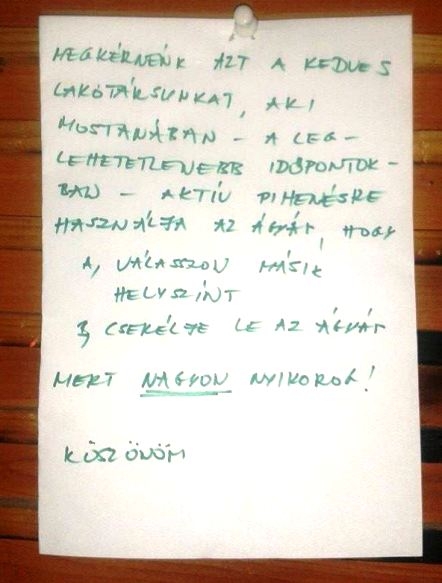 MEGKÉRNÉNK AZT A KEDVES
LAKÓTÁRSUNKAT, AKI
MOSTANÁBAN - A LEG-
LEHETETLENEBB IDŐPONTOK-
BAN - AKTÍV PIHENÉSRE
HASZNÁLJA AZ ÁGYÁT, HOGY
A, VÁLASSZON MÁSIK
HELYSZÍNT
B, CSERÉLJE LE AZ ÁGYÁT
MERT NAGYON NYIKOROG!
KÖSZÖNÖM